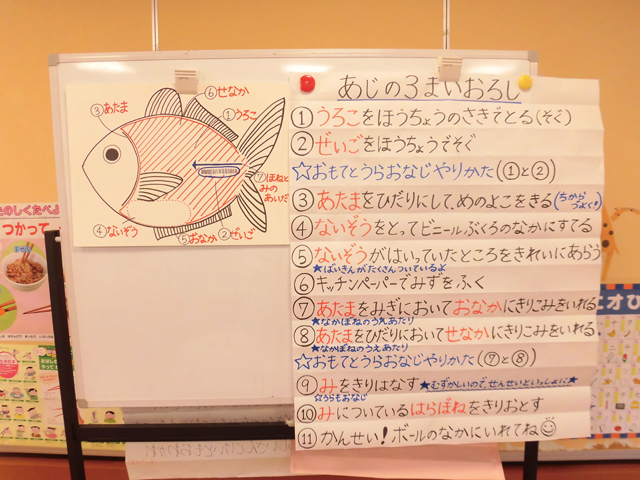 ⑥せなか
③あたま
①うろこ
⑦ほねと
みの
あいだ
④ないぞう
⑤おなか
②ぜいご
あじの3まいおろし
①うろこをほうちょうのさきでとる(そぐ)
②ぜいごをほうちょうでそぐ
☆おもてとうらおなじやりかた(①と②)
③あたまをひだりにして、めのよこをきる(ちからつよく!!)
④ないぞうをとってビニールぶくろのなかにすてる
⑤ないぞうがはいっていたところをきれいにあらう
★ばいきんがたくさんついているよ
⑥キッチンペーパーでみずをふく
⑦あたまをみぎにおいておなかにきりこみをいれる
★なかぼねのうえあたり
⑧あたまをひだりにおいてせなかにきりこみをいれる
★なかぼねのうえあたり
☆おもてとうらおなじやりかた(⑦と⑧)
⑨みをきりはなす★むずかしいのでせんせいといっしょに★
☆うらもおなじ
⑩みについているはらぼねをきりおとす
⑪かんせい!ボールのなかにいれてね
たのしくたべよ
つかって